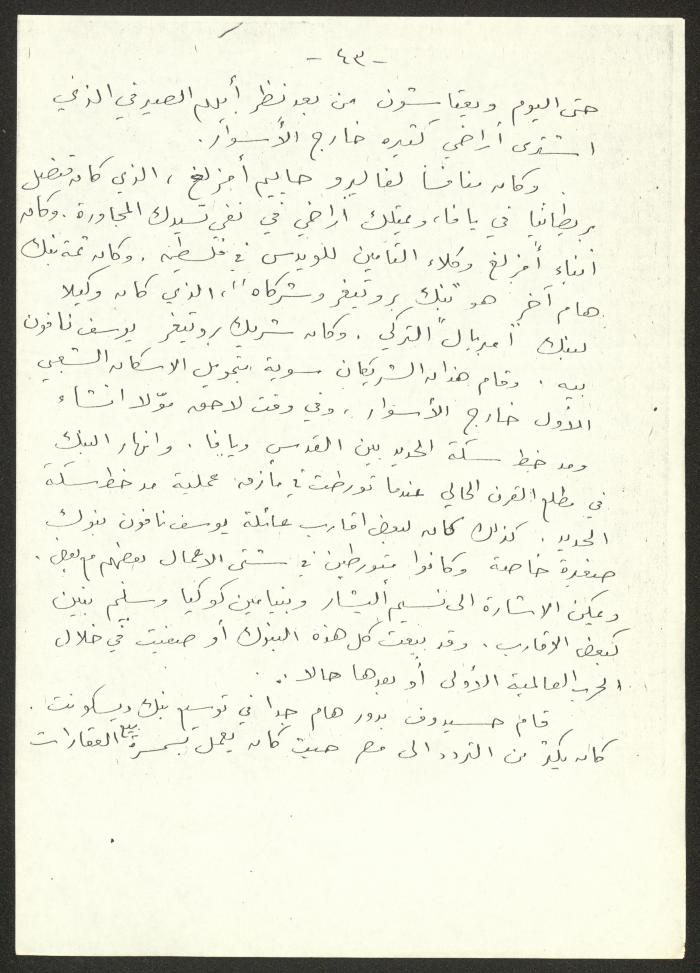 - ٤٣ -
حتى اليوم ويعتاشون من بعد نظر أبيهم الصيرفي الذي
اشترى أراضي كثيره خارج الأسوار.
وكان منافسا لفاليرو حاييم أمزلغ، الذي كان قنصل
بريطانيا في يافا، ويمتلك أراضي في نفي تسيدك المجاورة. وكان
أبناء أمزلغ وكلاء التأمين للويدس في فلسطين. وكان ثمة بنك
هام آخر هو "بنك بروتيغر وشركاه"، الذي كان وكيلا
لبنك "امبريال" التركي. وكان شريك بروتيغر يوسف نافون
بيه. وقام هذان الشريكان سوية بتمويل الاسكان الشعبي
الأول خارج الأسوار، وفي وقت لاحق موّلا انشاء
ومد خط سكة الحديد بين القدس ويافا. وانهار البنك
في مطلع القرن الحالي عندما تورطت في مأزق عملية مد خط سكة
الحديد. كذلك كان لبعض اقارب عائلة يوسف نافون بنوك
صغيرة خاصة وكانوا متورطين في شتى الاعمال بعضهم مع بعض.
ويمكن الاشارة الى نسيم أليشار وبنيامين كوكيا وسليم بنين
كبعض الاقارب. وقد بيعت كل هذه البنوك أو صفيت في خلال
الحرب العالمية الأولى أو بعدها حالا.
قام حسيدوف بدور هام جدا في توسيع بنك ديسكونت.
كان يكثر من التردد الى مصر حيث كان يعمل بسمسرة بيع العقارات